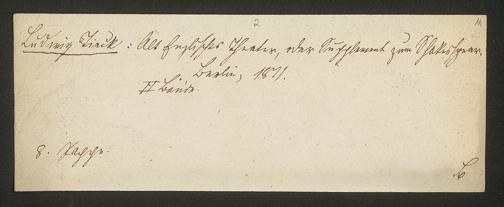 2
Ludwig Tieck: Alt Englisches Theater, oder Supplement zum Shakespear.
Berlin, 1811.
II Bände.
8.